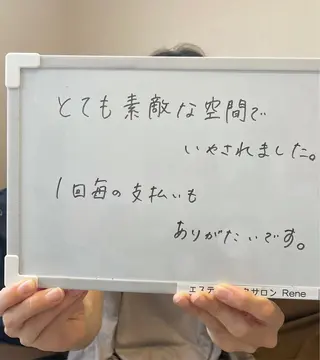 とても素敵な空間で
いやされました。
1回毎の支払いも
ありがたいです。
エステ
サロン Rene